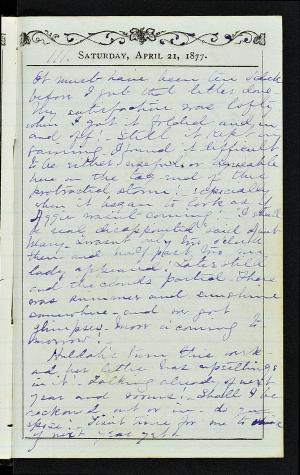 111.
SATURDAY, APRIL 21, 1877.
It must have been ten o'clock
before I got that letter done.
My satisfaction was lofty
when I got it folded and in
and off! Still it kept on
raining. I found it difficult
to be either or agreeable
here on the tag-end of this
protracted storm! especially
when it began to look as if
Aggie wasn't coming! "I shall
be real disappointed" said Aunt
Mary. wasn't very two o'clock
then and half past two my
lady appeared! Later still
and the clouds parted. There
was summer and sunshine
somewhere and we got
glimpses. More a coming to-
morrow!
Huldah's turn this week
and her letter has a
in it. Talking already of next
year and rooms! Shall I be
reckoned out or in - do you
spose? 'Tisn't none for me to
of next year yet.